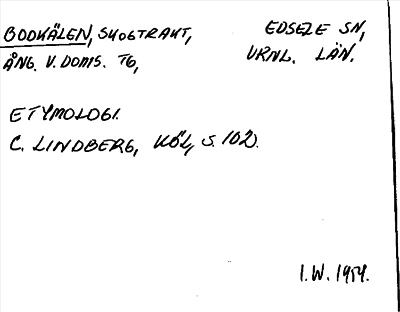 BODKÄLEN, SKOGTRAKT, EDSELE SN,
ÅNG. V. DOMS. TG, VRNL. LÄN.
ETYMOLOGI.
C. LINDBERG, KÖL, S. 102.
I.W. 1954.